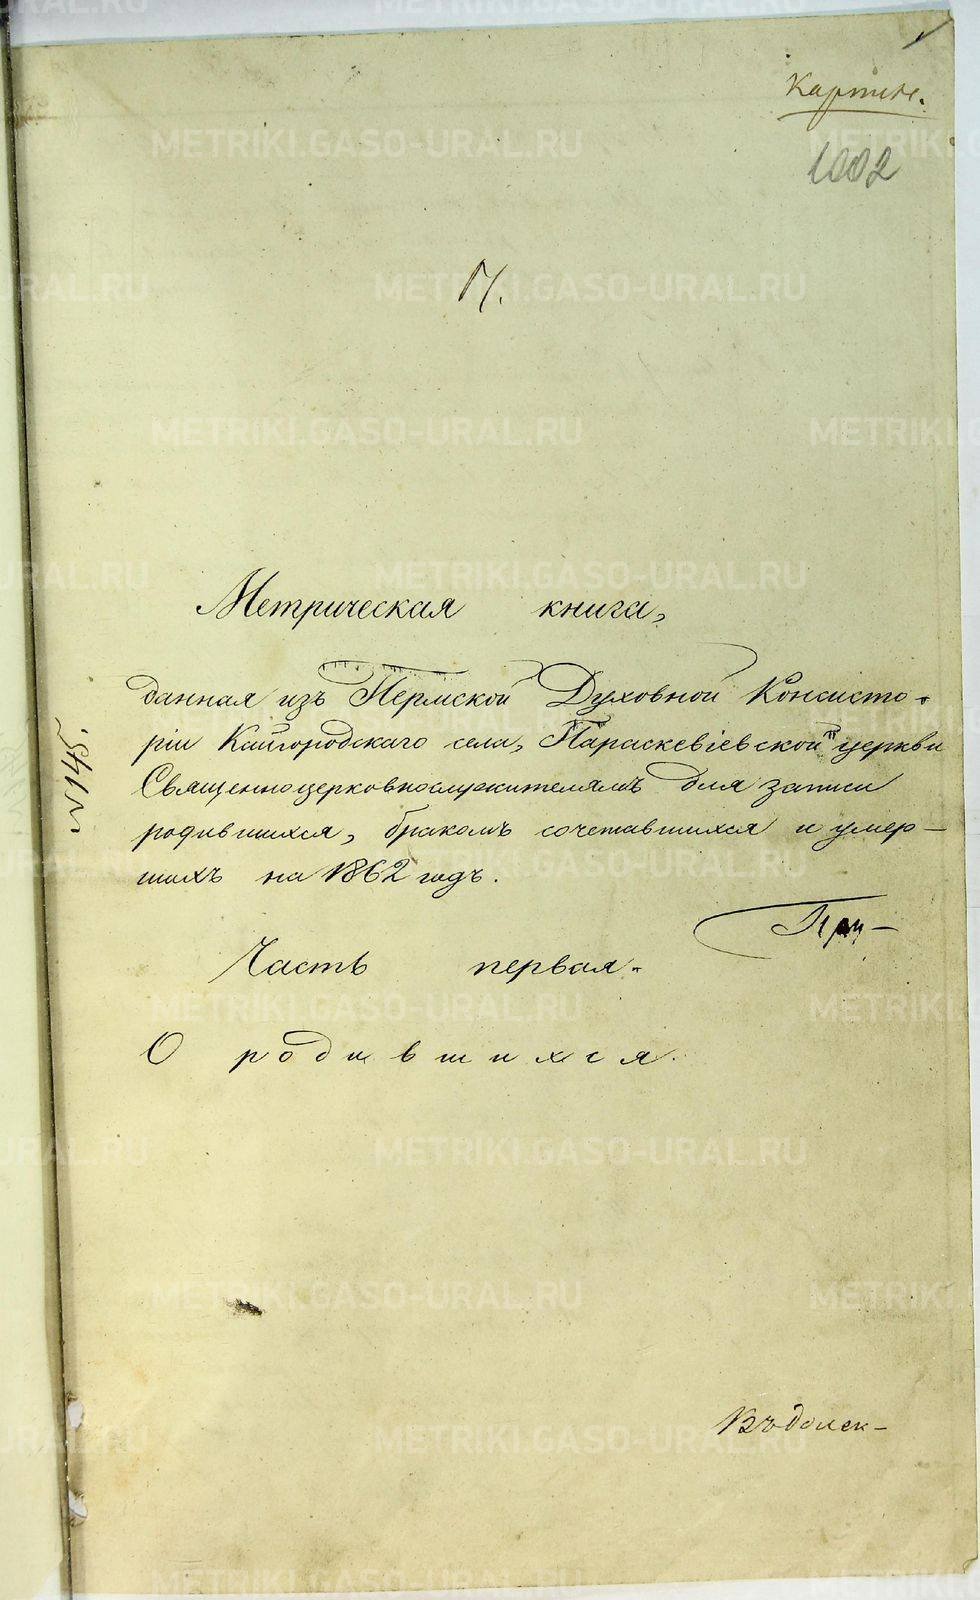 1002
Метрическая книга,
данная изъ Пермской Духовной Консисто-
ріи Кайгородскаго села, Параскевіевской церкви
Священноцерковнослужителямъ для записи
родившихся, бракомъ сочетавшихся и умер-
шихъ на 1862 годъ.
№ 145.
При-
Часть первая.
О родившихся.
METRIKI.GASO-URAL.RU